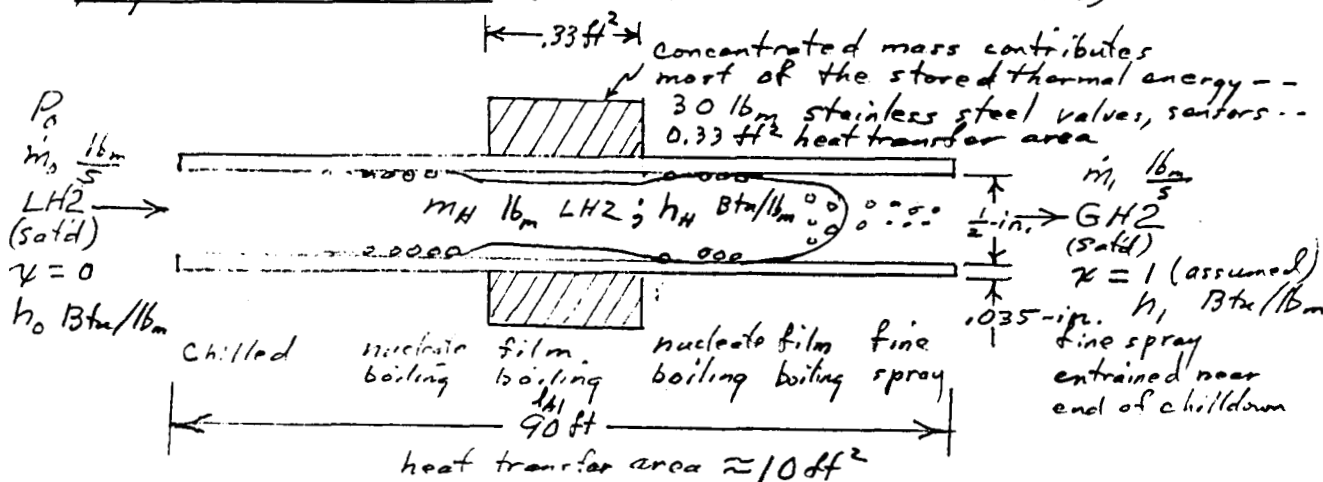 .33 ft²
concentrated mass contributes
most of the stored thermal energy--
30 lbm stainless steel valves, sensors--
0.33 ft² heat transfer area
P₀
ṁ₀ lbm/s
LH2
(sat'd)
x = 0
h₀ Btu/lbm
m_H lbm LH2; h_H Btu/lbm
1/2-in.
.035-in.
ṁ₁ lbm/s
GH2
(sat'd)
x = 1 (assumed)
h₁ Btu/lbm
fine spray
entrained near
end of chilldown
chilled
nucleate boiling
film boiling
nucleate boiling
film boiling
fine spray
90 ft
heat transfer area ≈ 10 ft²